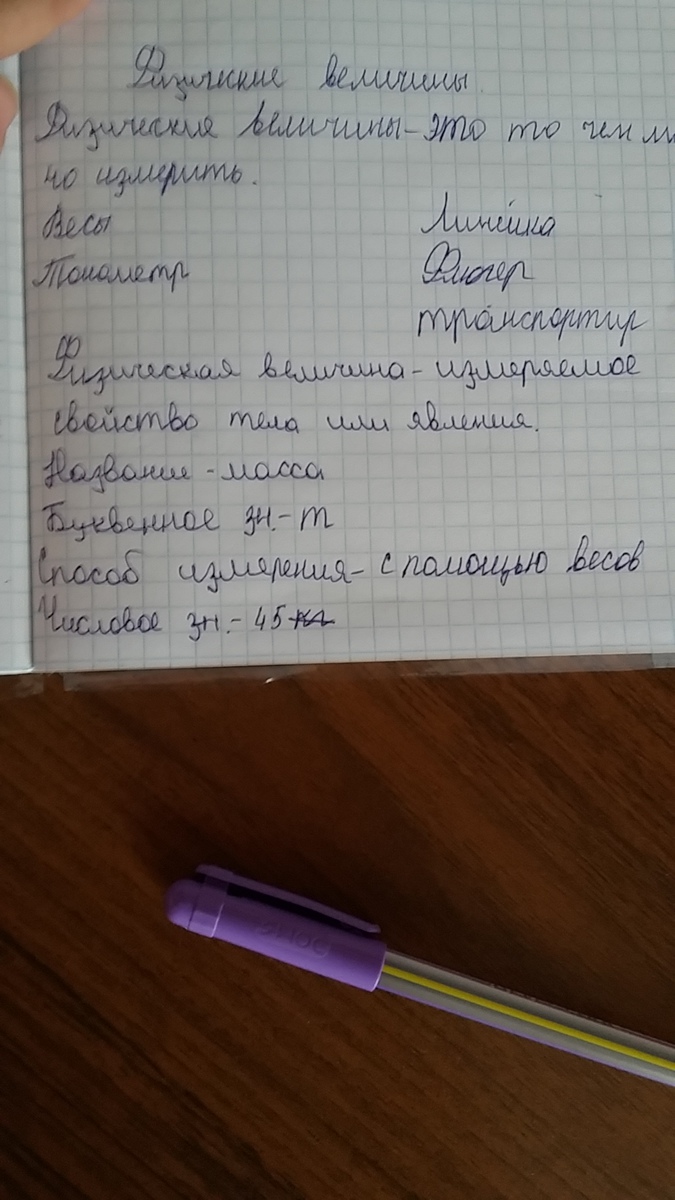 Физические величины.
Физические величины - это то чем м
но измерить.
Весы Линейка
Тонометр Флюгер
транспортир
Физическая величина - измеряемое
свойство тела или явления.
Название - масса
Буквенное зн. - m
Способ измерения - с помощью весов
Числовое зн. - 45 кг